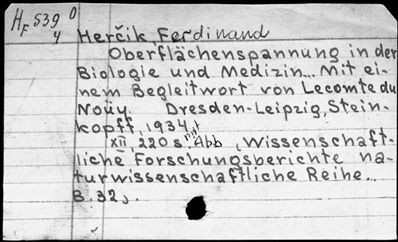 HF 539 0
4
Herčik Ferdinand
Oberflächenspannung in der
Biologie und Medizin... Mit ei-
nem Begleitwort von Lecomte du
Noüy. Dresden-Leipzig, Stein-
kopff, 1934.
XII, 220 S. mit Abb. (Wissenschaft-
liche Forschungsberichte na-
turwissenschaftliche Reihe..
B. 32).